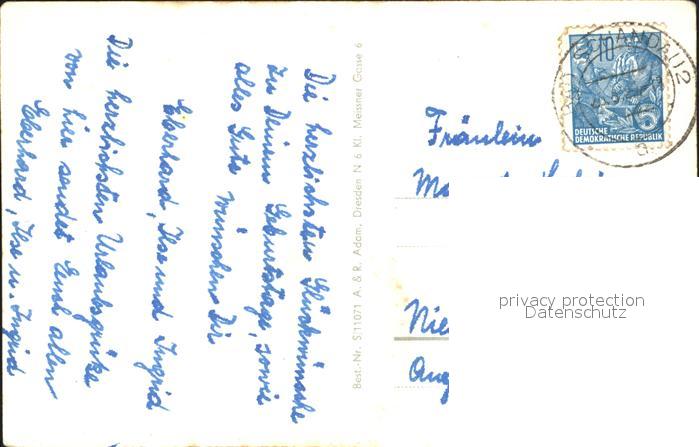 Die herzlichsten Glückwünsche
zu Deinem Geburtstage, sowie
alles Gute wünschen Dir
Eberhard, Ilse und Ingrid
Die herzlichsten Urlaubsgrüße
von hier sendet Euch allen
Eberhard, Ilse u. Ingrid
Best.-Nr. S 11071 A. & R. Adam, Dresden N 6 Kl. Meissner Gasse 6
10
DEUTSCHE
DEMOKRATISCHE REPUBLIK
Fräulein
privacy protection
Datenschutz